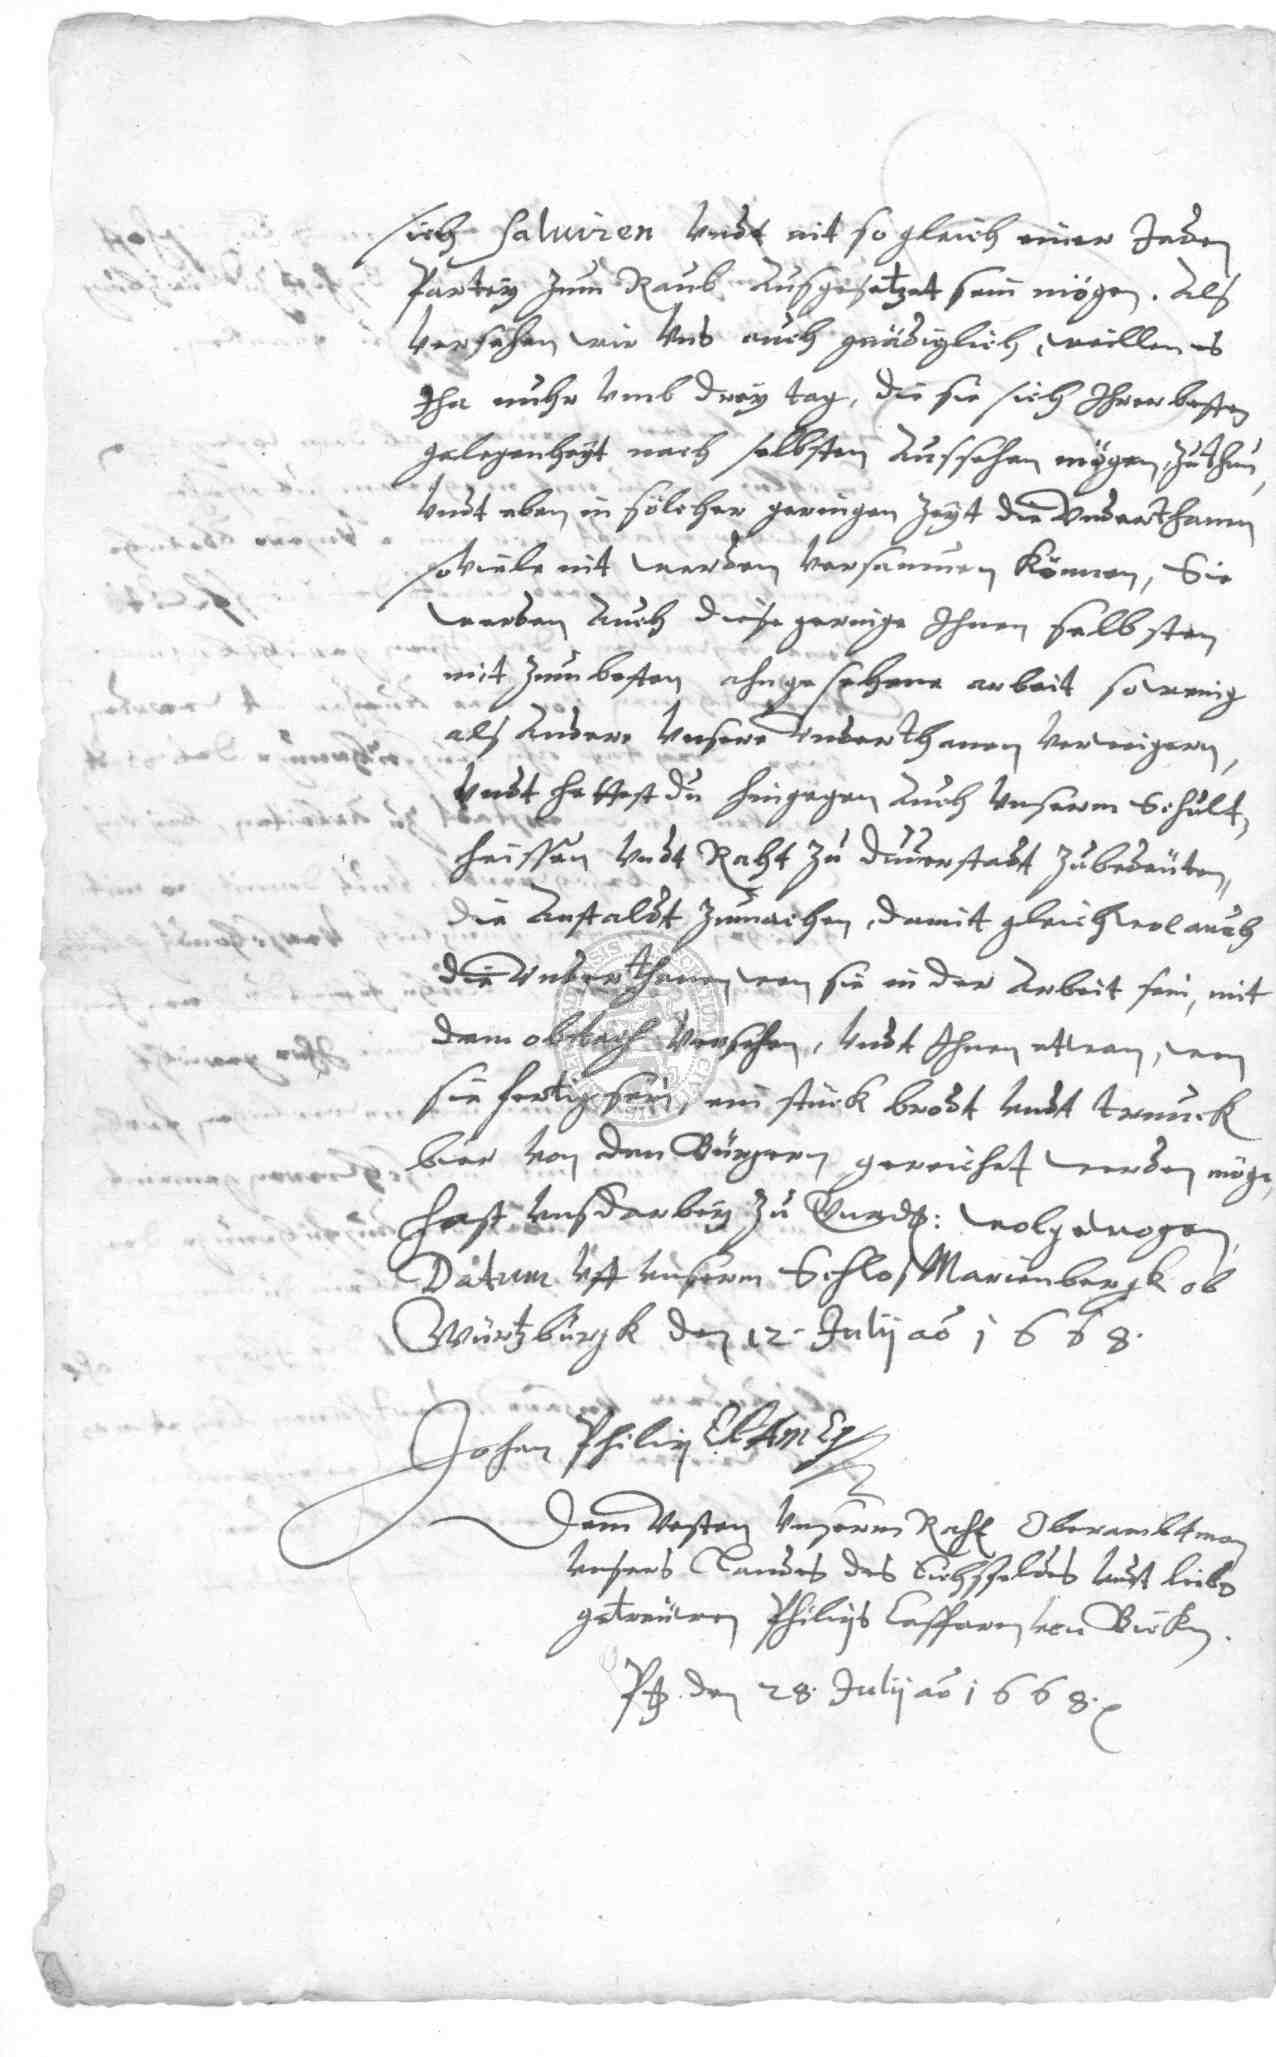 sich salviren undt nit so gleich einer Jeden
Partey zum Raub ausgesetzet sein mögen. Als
versehen wir uns auch gnädiglich, weillen es
Jha nuhr umb drey tag, die sie sich Ihrer besten
gelegenheyt nach selbsten aussehen mögen, zuthun,
undt eben in solcher geringen Zeyt die Underthanen
so viele nit werden versaumen können, Sie
werden auch diese geringe Ihnen selbsten
mit zum besten ahngesehene arbeit so wenig
als andere unsere Underthanen verweigern,
undt hettest du hingegen auch unserm Schult,
heissen undt Raht zu Duderstadt zubedeüten,
die Anstaldt zumachen, damit gleichwol auch
die Underthanen, wen sie in der Arbeit sein, mit
dem obttach versehen, undt Ihnen etwan, wen
sie fertig sein, ein stück brodt undt trunck
bier von den Bürgern gereichet werden möge,
hast uns darbey zu Gnad: wolgewogen,
Datum uff unserm Schlos Marienbergk ob
Würtzburgk den 12. Julij aō 1668.
Johan Philip
Dem Vesten unserm Raht Oberambtman
unsers Landes des Eichsfeldes undt lieben
getreüwen Philips Caspparn von Bicken.
den 28. Julij aō 1668.